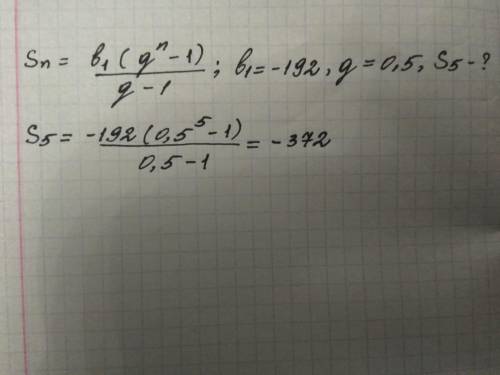 Sn = b₁(qⁿ-1)/q-1; b₁=-192, q=0,5, S5-?
S5 = -192(0,5⁵-1)/0,5-1 = -372